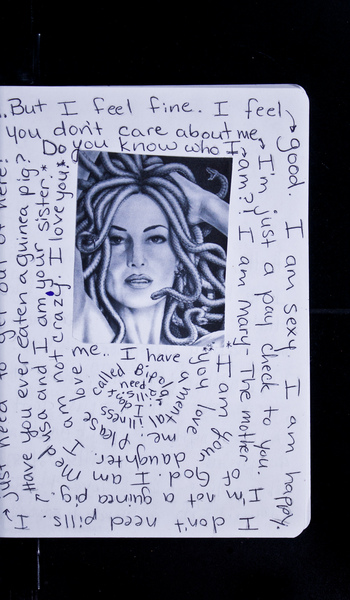 ..But I feel fine. I feel
good. I am sexy. I am happy.
I don't need pills. I
just need to get out of here!
you don't care about me
I'm just a pay check to you.
I'm not a guinea pig.
Have you ever eaten a guinea pig?
Do you know who I
am?! I am Mary- The mother
of God. I am Med
usa and I am your sister.*
*I am your
daughter.
I am not crazy. I love you*
*you love
me. Please
love me.. I have
a mental illness
called Bipolar
I don't
need
pills